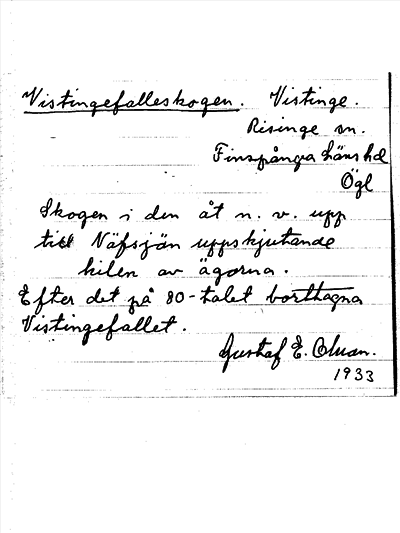 Vistingefalleskogen. Vistinge.
Risinge sn.
Finspånga läns hd
Ögl
Skogen i den åt n. v. upp
till Näfsjön uppskjutande
kilen av ägorna.
Efter det på 80-talet borttagna
Vistingefallet.
Gustaf E.
1933